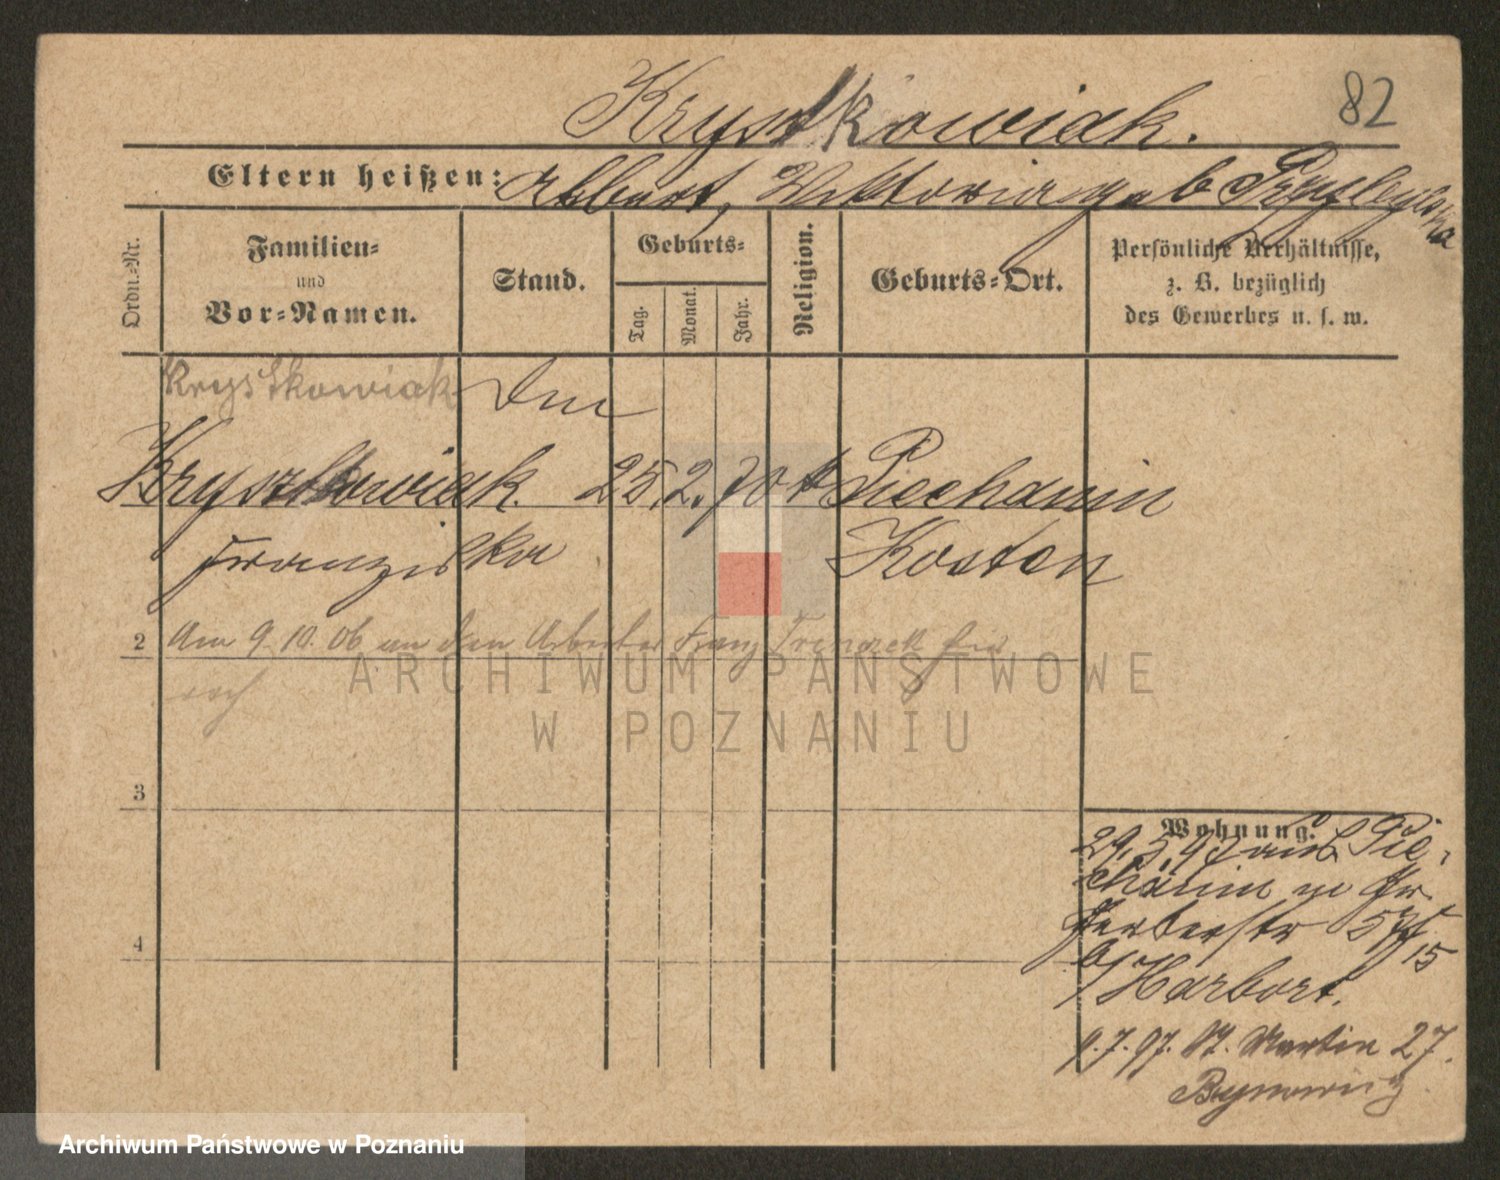 82
Krystkowiak.
Eltern heißen: Albert, Viktoria geb
Ordn.-Nr.
Familien-
und
Vor-Namen.
Stand.
Geburts-
Tag.
Monat.
Jahr.
Religion.
Geburts-Ort.
Persönliche Verhältnisse,
z. B. bezüglich
des Gewerbes u. s. w.
Krystkowiak
Krystkowiak 25. 2. 70 k Piechanin
Franziska Kosten
2 Am 9. 10. 06 an den Arbeiter Franz
3
4
Wohnung.
29. 5. 97 aus Pie-
chanin
15
b/ Harbort.
9. 7. 97. St. Martin 27.
ARCHIWUM PAŃSTWOWE
W POZNANIU
Archiwum Państwowe w Poznaniu